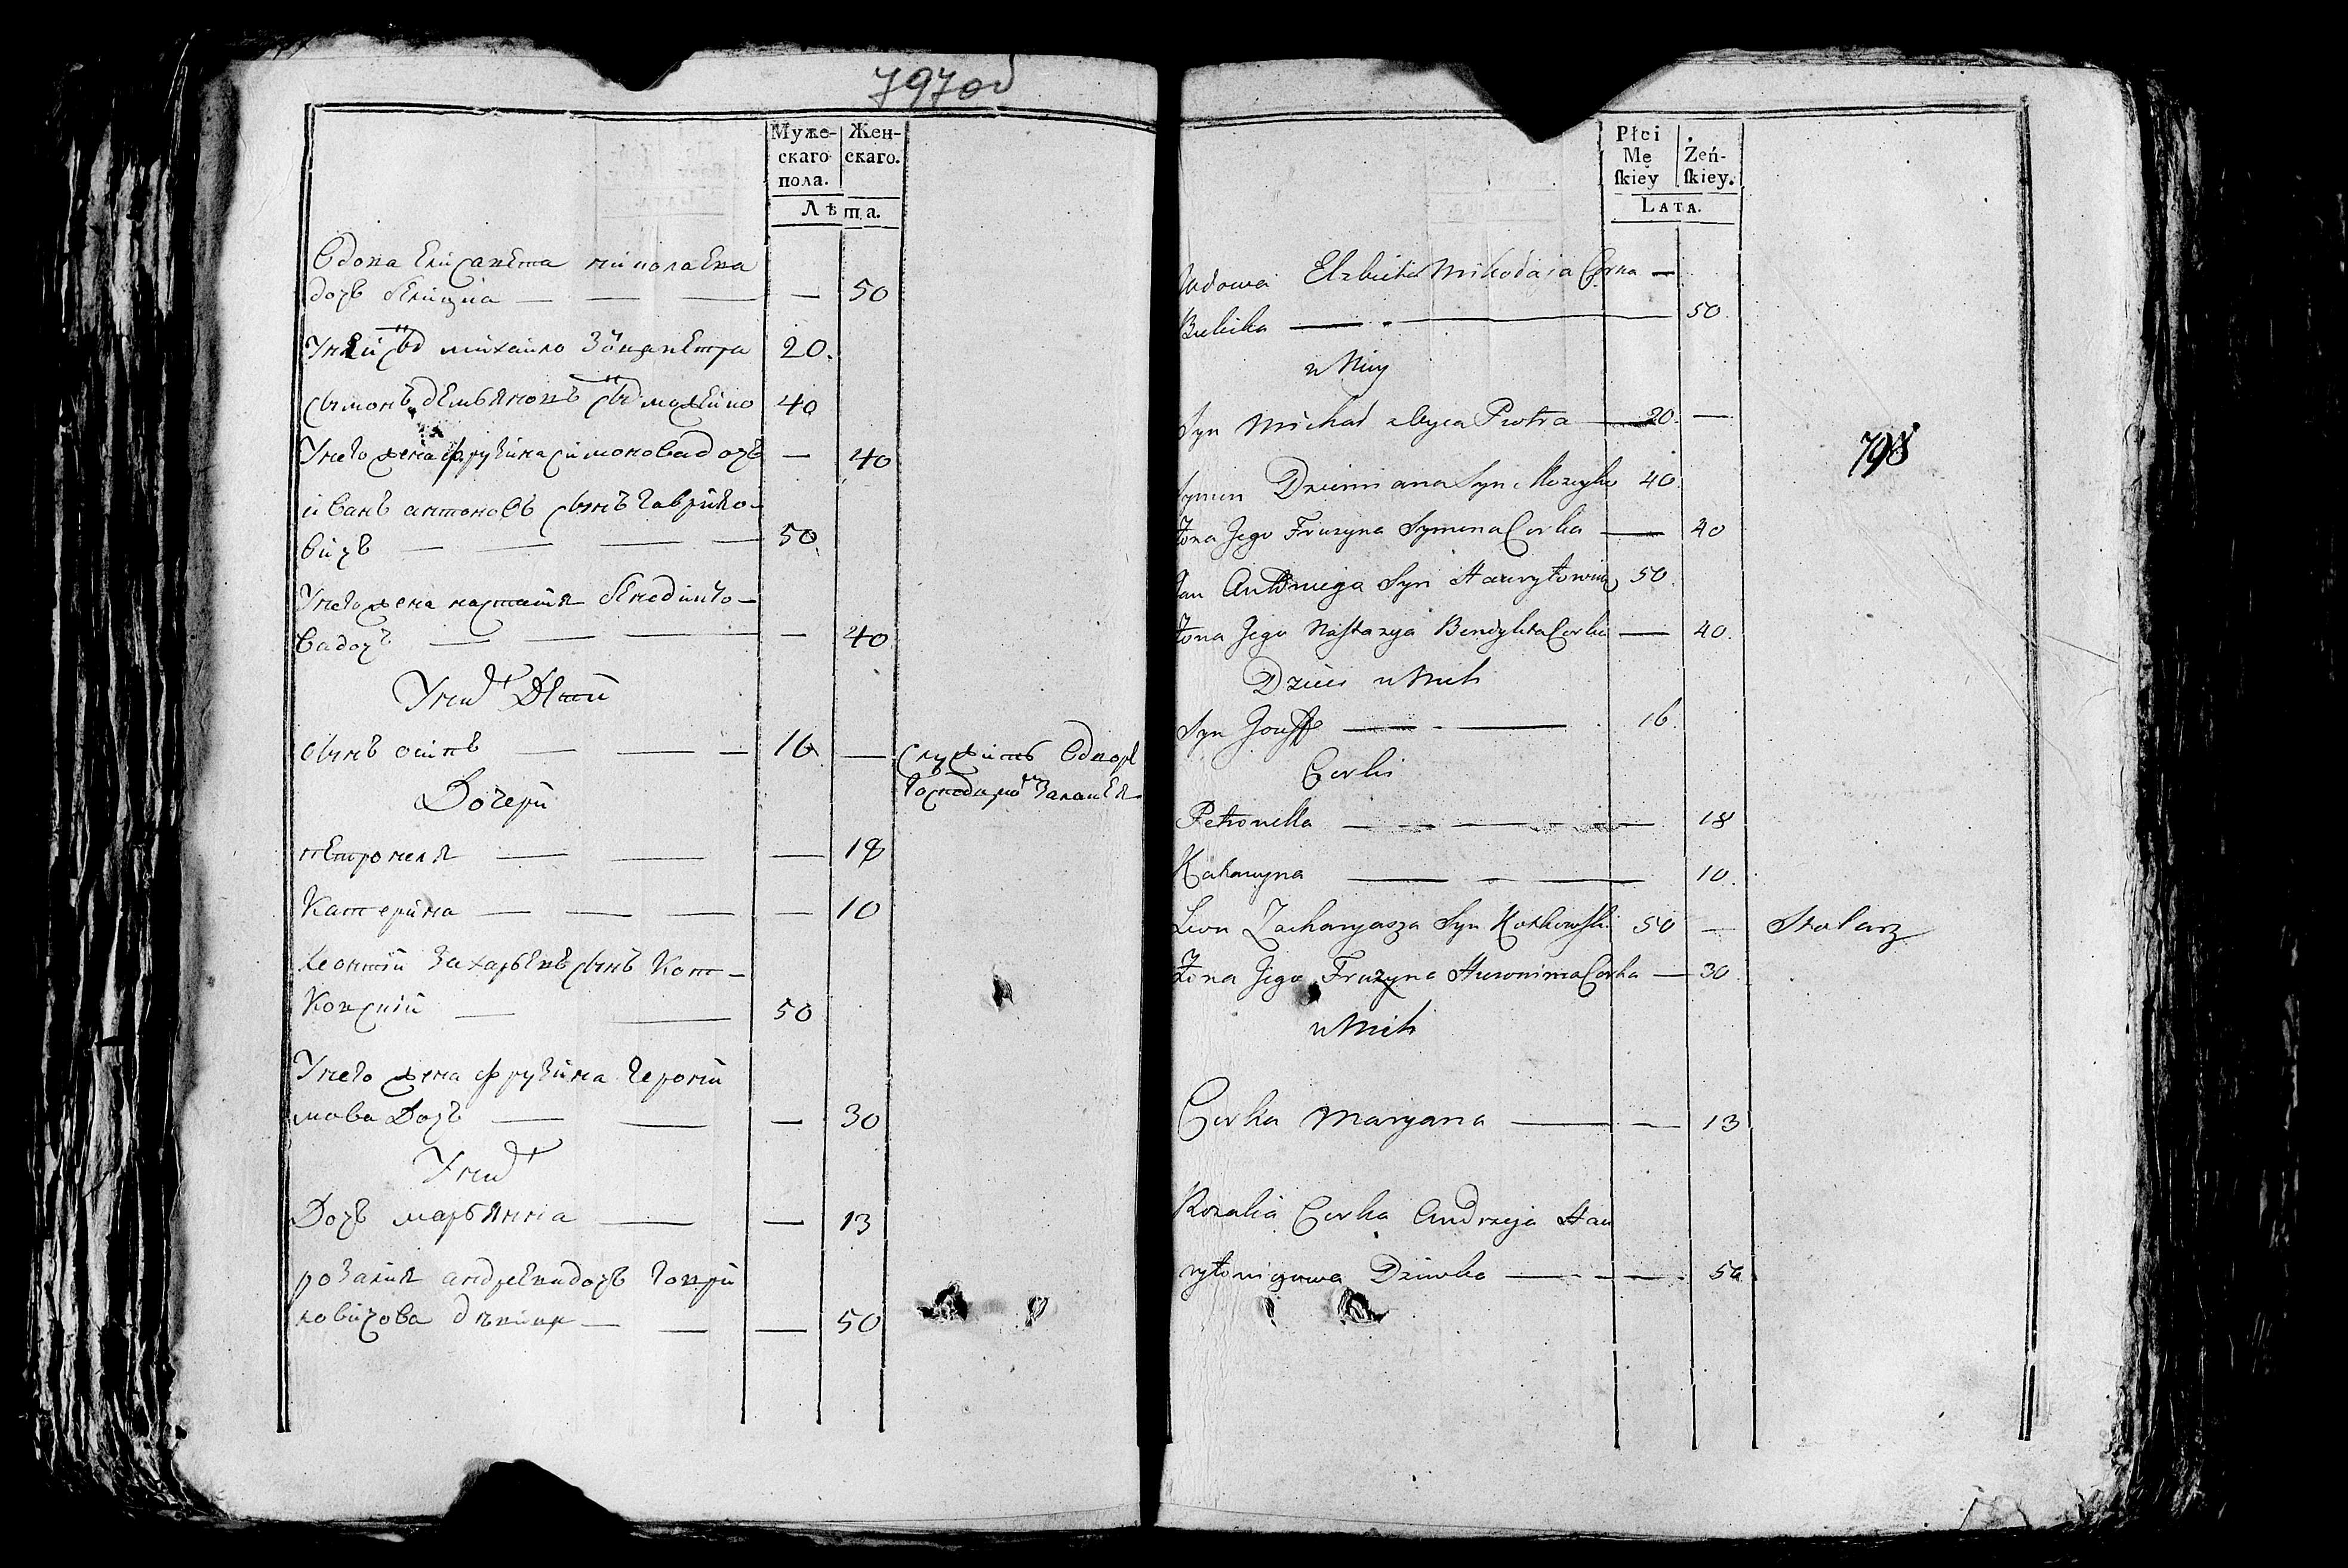 797об
Муже- Жен-
скаго скаго.
пола.
Лѣта.
Вдова Елисавета николаева
дочь — — — — 50
Унея сынъ михайло Зоица петра 20.
Сымонъ демьяновъ сынъ 40
Унего жена фрузина симонова дочь — 40
иванъ антоновъ сынъ гаврило-
вичъ — — — — 50
Унего жена настасия бенедикто-
ва дочъ — — — — 40
Унихъ Дети
сынъ осипъ — — — 16 — Служитъ
Дочери
петронеля — — — 18
Катерина — — — — 10
Леонтий Захарьевъ сынъ Кот-
ковский — — 50
Унего жена фрузина герони
мова Дочъ — — — 30
Унихъ
Дочъ марьянна — — 13
розалия андреева дочъ гаври
ловичова девица — — — 50
Płci Żeń-
Mę skiey.
skiey
LATA.
Wdowa Elzbieta Mikołaja Corka —
— — 50.
u Niey
Syn Michał z Oyca Piotra — 20. —
Symon Dziemiana Syn 40
Żona Jego Fruzyna Symona Corka — 40
Jan Antoniego Syn Hawryłowicz 50.
Żona Jego Nastazya Bendykta Corka — 40.
Dzieci u Nich
Syn Jouzeff — — 16.
Corki
Petronella — — — 18
Katarzyna — — — 10.
Leon Zacharyasza Syn Kotkowski 50 — Stolarz
Żona Jego Fruzyna Hieronima Corka — 30
u Nich
Corka Maryana — — 13
Rozalia Corka Andrzeja Haw
ryłowiczowa Dziewka — — — 50.
798